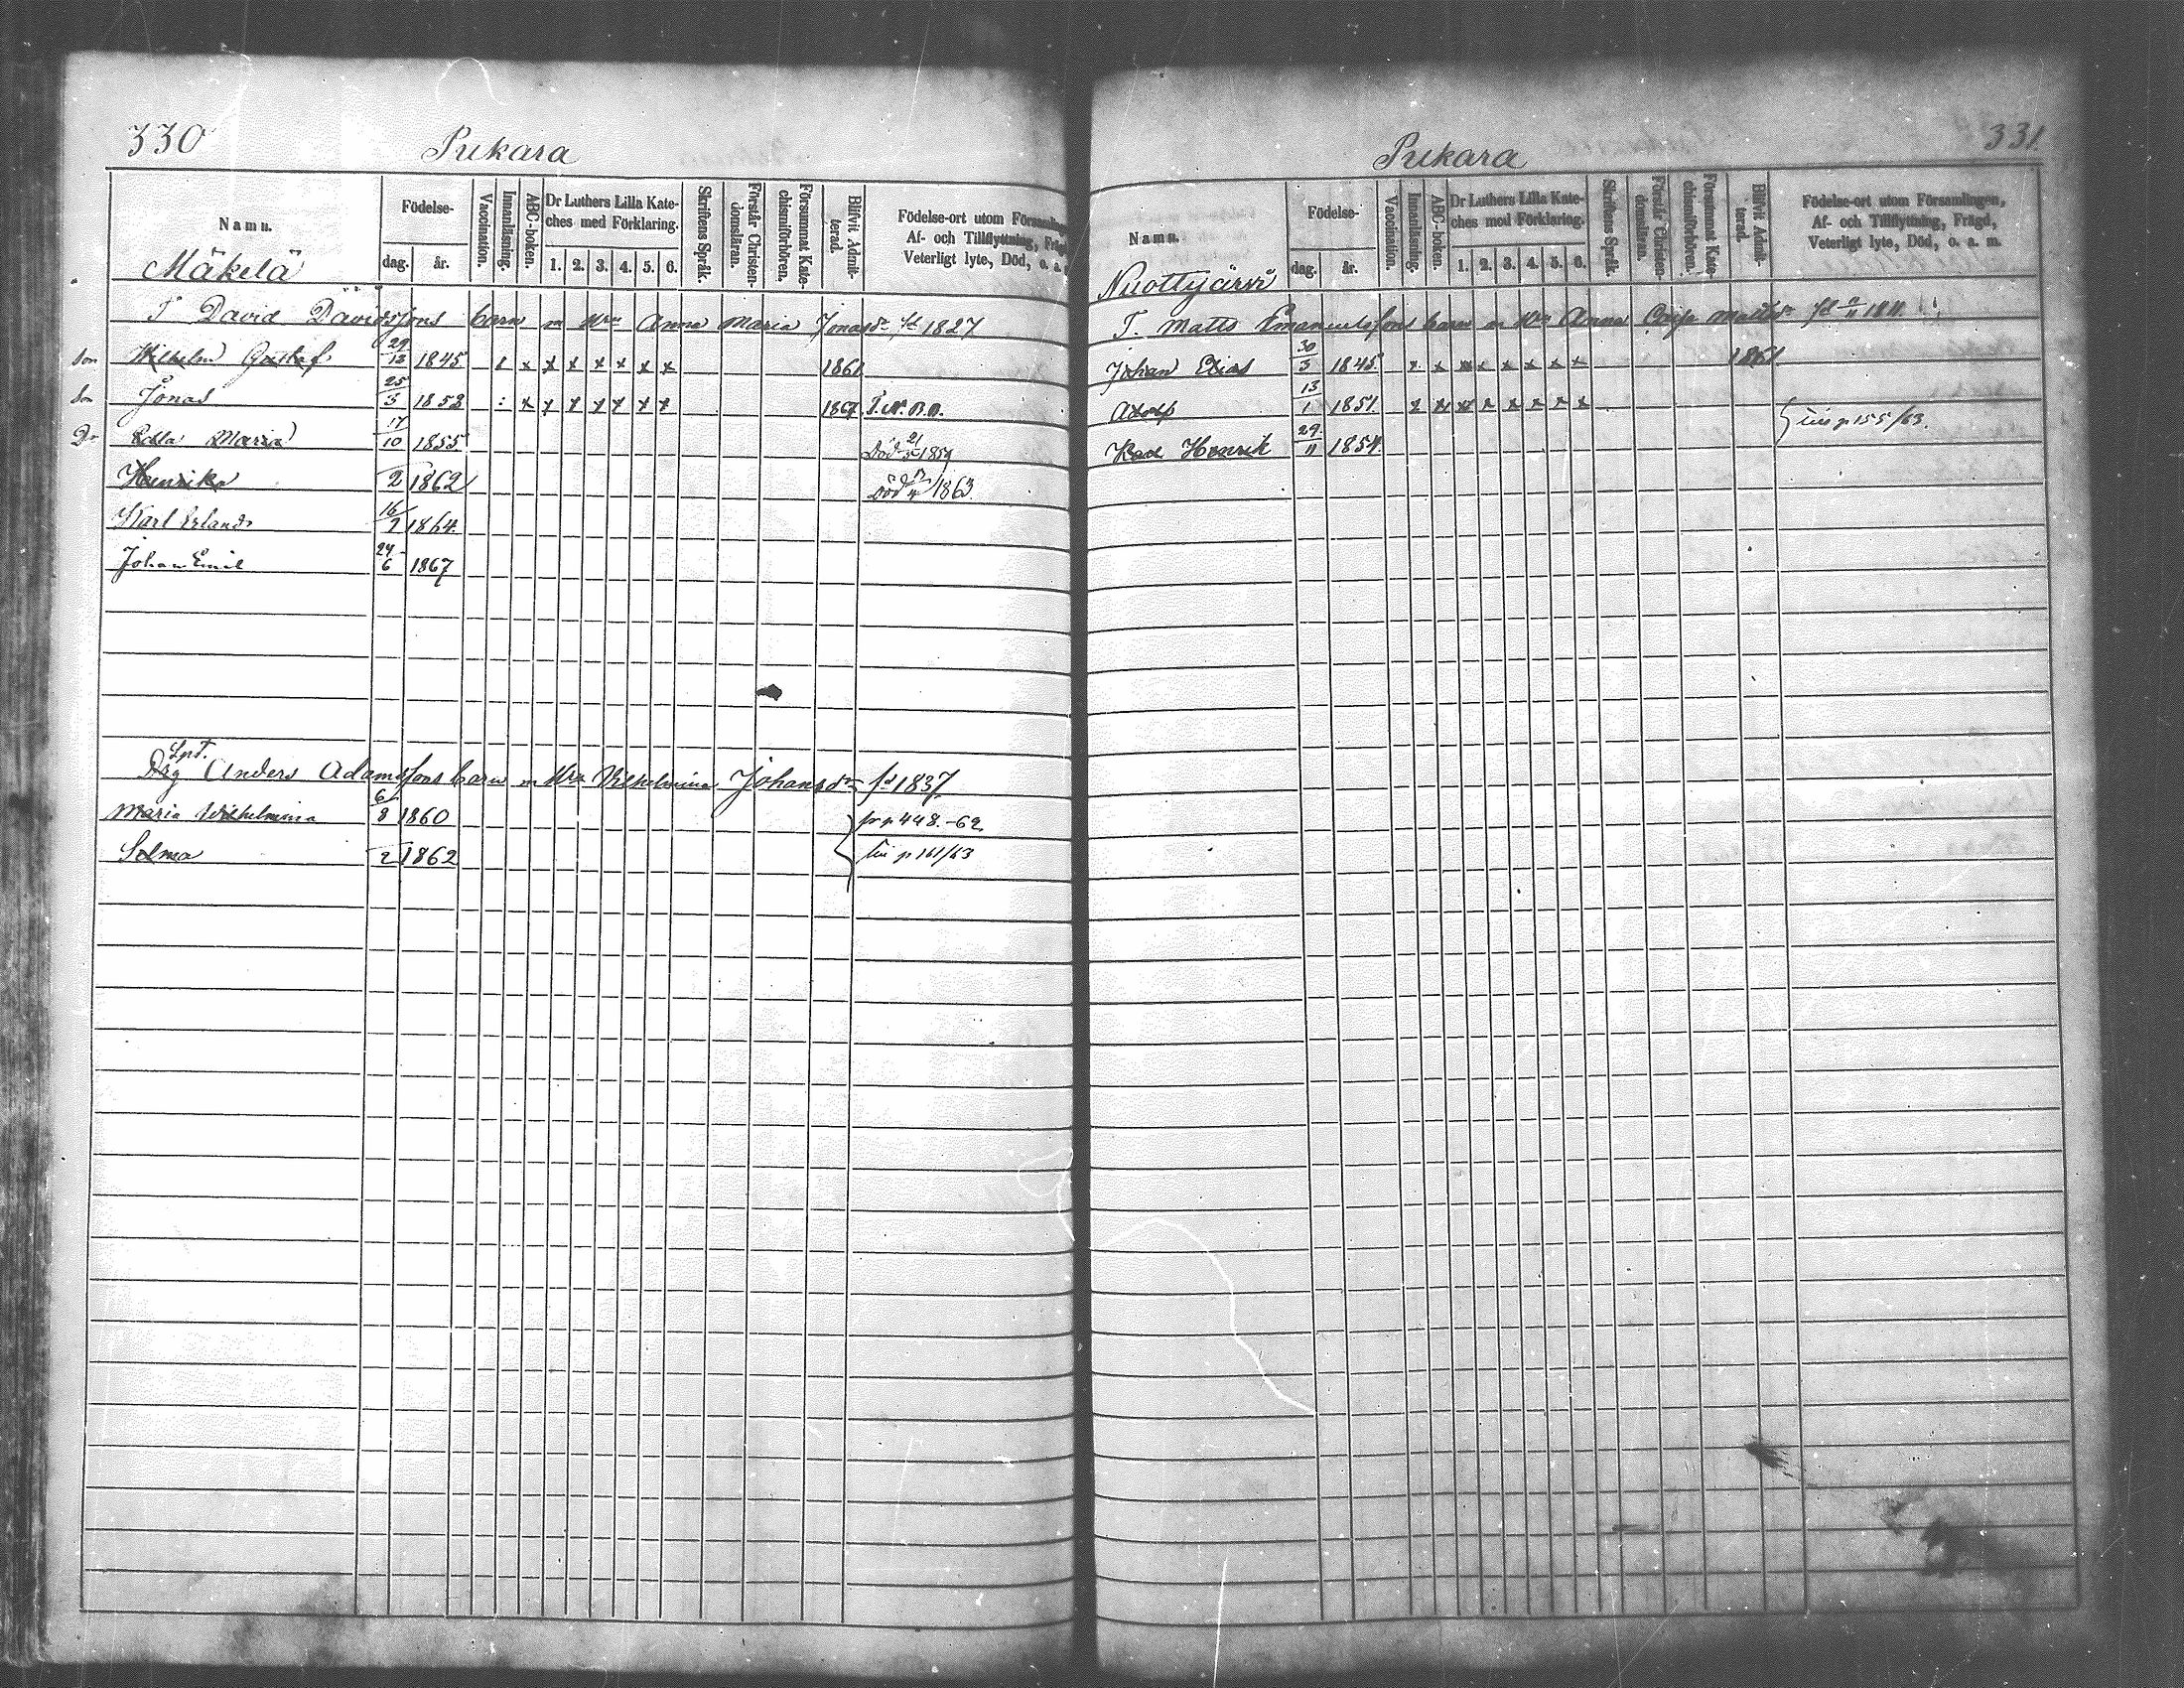 330
Pukara
Namn.
Födelse-
dag.
år.
Vaccination.
Innanläsning.
ABC-boken.
Dr Luthers Lilla Kate-
ches med Förklaring.
1. 2. 3. 4. 5. 6.
Skriftens Språk.
Förstår Christen-
domsläran.
Försummat Kate-
chismiförhören.
Blifvit Admit-
terad.
Födelse-ort utom Församling
Af- och Tillflyttning, Fräg
Veterligt lyte, Död, o. a.
Mäkelä
T David Davidssons barn m Anna Maria Jonasdr fd 1827
Son Wilhelm Gustaf 29/12 1845 x x x x x x x 1861
Son Jonas 25/5 1852 x x x x x x x 1867
Dr Maria 17/10 1855 Död 1859
Henrika /2 1862 Död 1863.
Karl Erland 16/7 1864.
Johan Emil 24/6 1867
Anders Adamssons barn m Vilhelmina Johansdr fd 1837
Maria Wilhelmina 6/8 1860 fr p 448.-62.
Selma /2 1862 p 161/63
331
Pukara
Namn.
Födelse-
dag.
år.
Vaccination.
Innanläsning.
ABC-boken.
Dr Luthers Lilla Kate-
ches med Förklaring.
1. 2. 3. 4. 5. 6.
Skriftens Språk.
Förstår Christen-
domsläran.
Försummat Kate-
chismiförhören.
Blifvit Admit-
terad.
Födelse-ort utom Församlingen,
Af- och Tillflyttning, Frägd,
Veterligt lyte, Död, o. a. m.
Nuottijärvi
T. Matts Emanuelssons barn m Anna Mattsdr fd 1811
Johan Elias 30/3 1845 x x x x x x x x 1861
Adolf 13/1 1851. x x x x x x x x
Karl Henrik 29/11 1854. p 155/63.